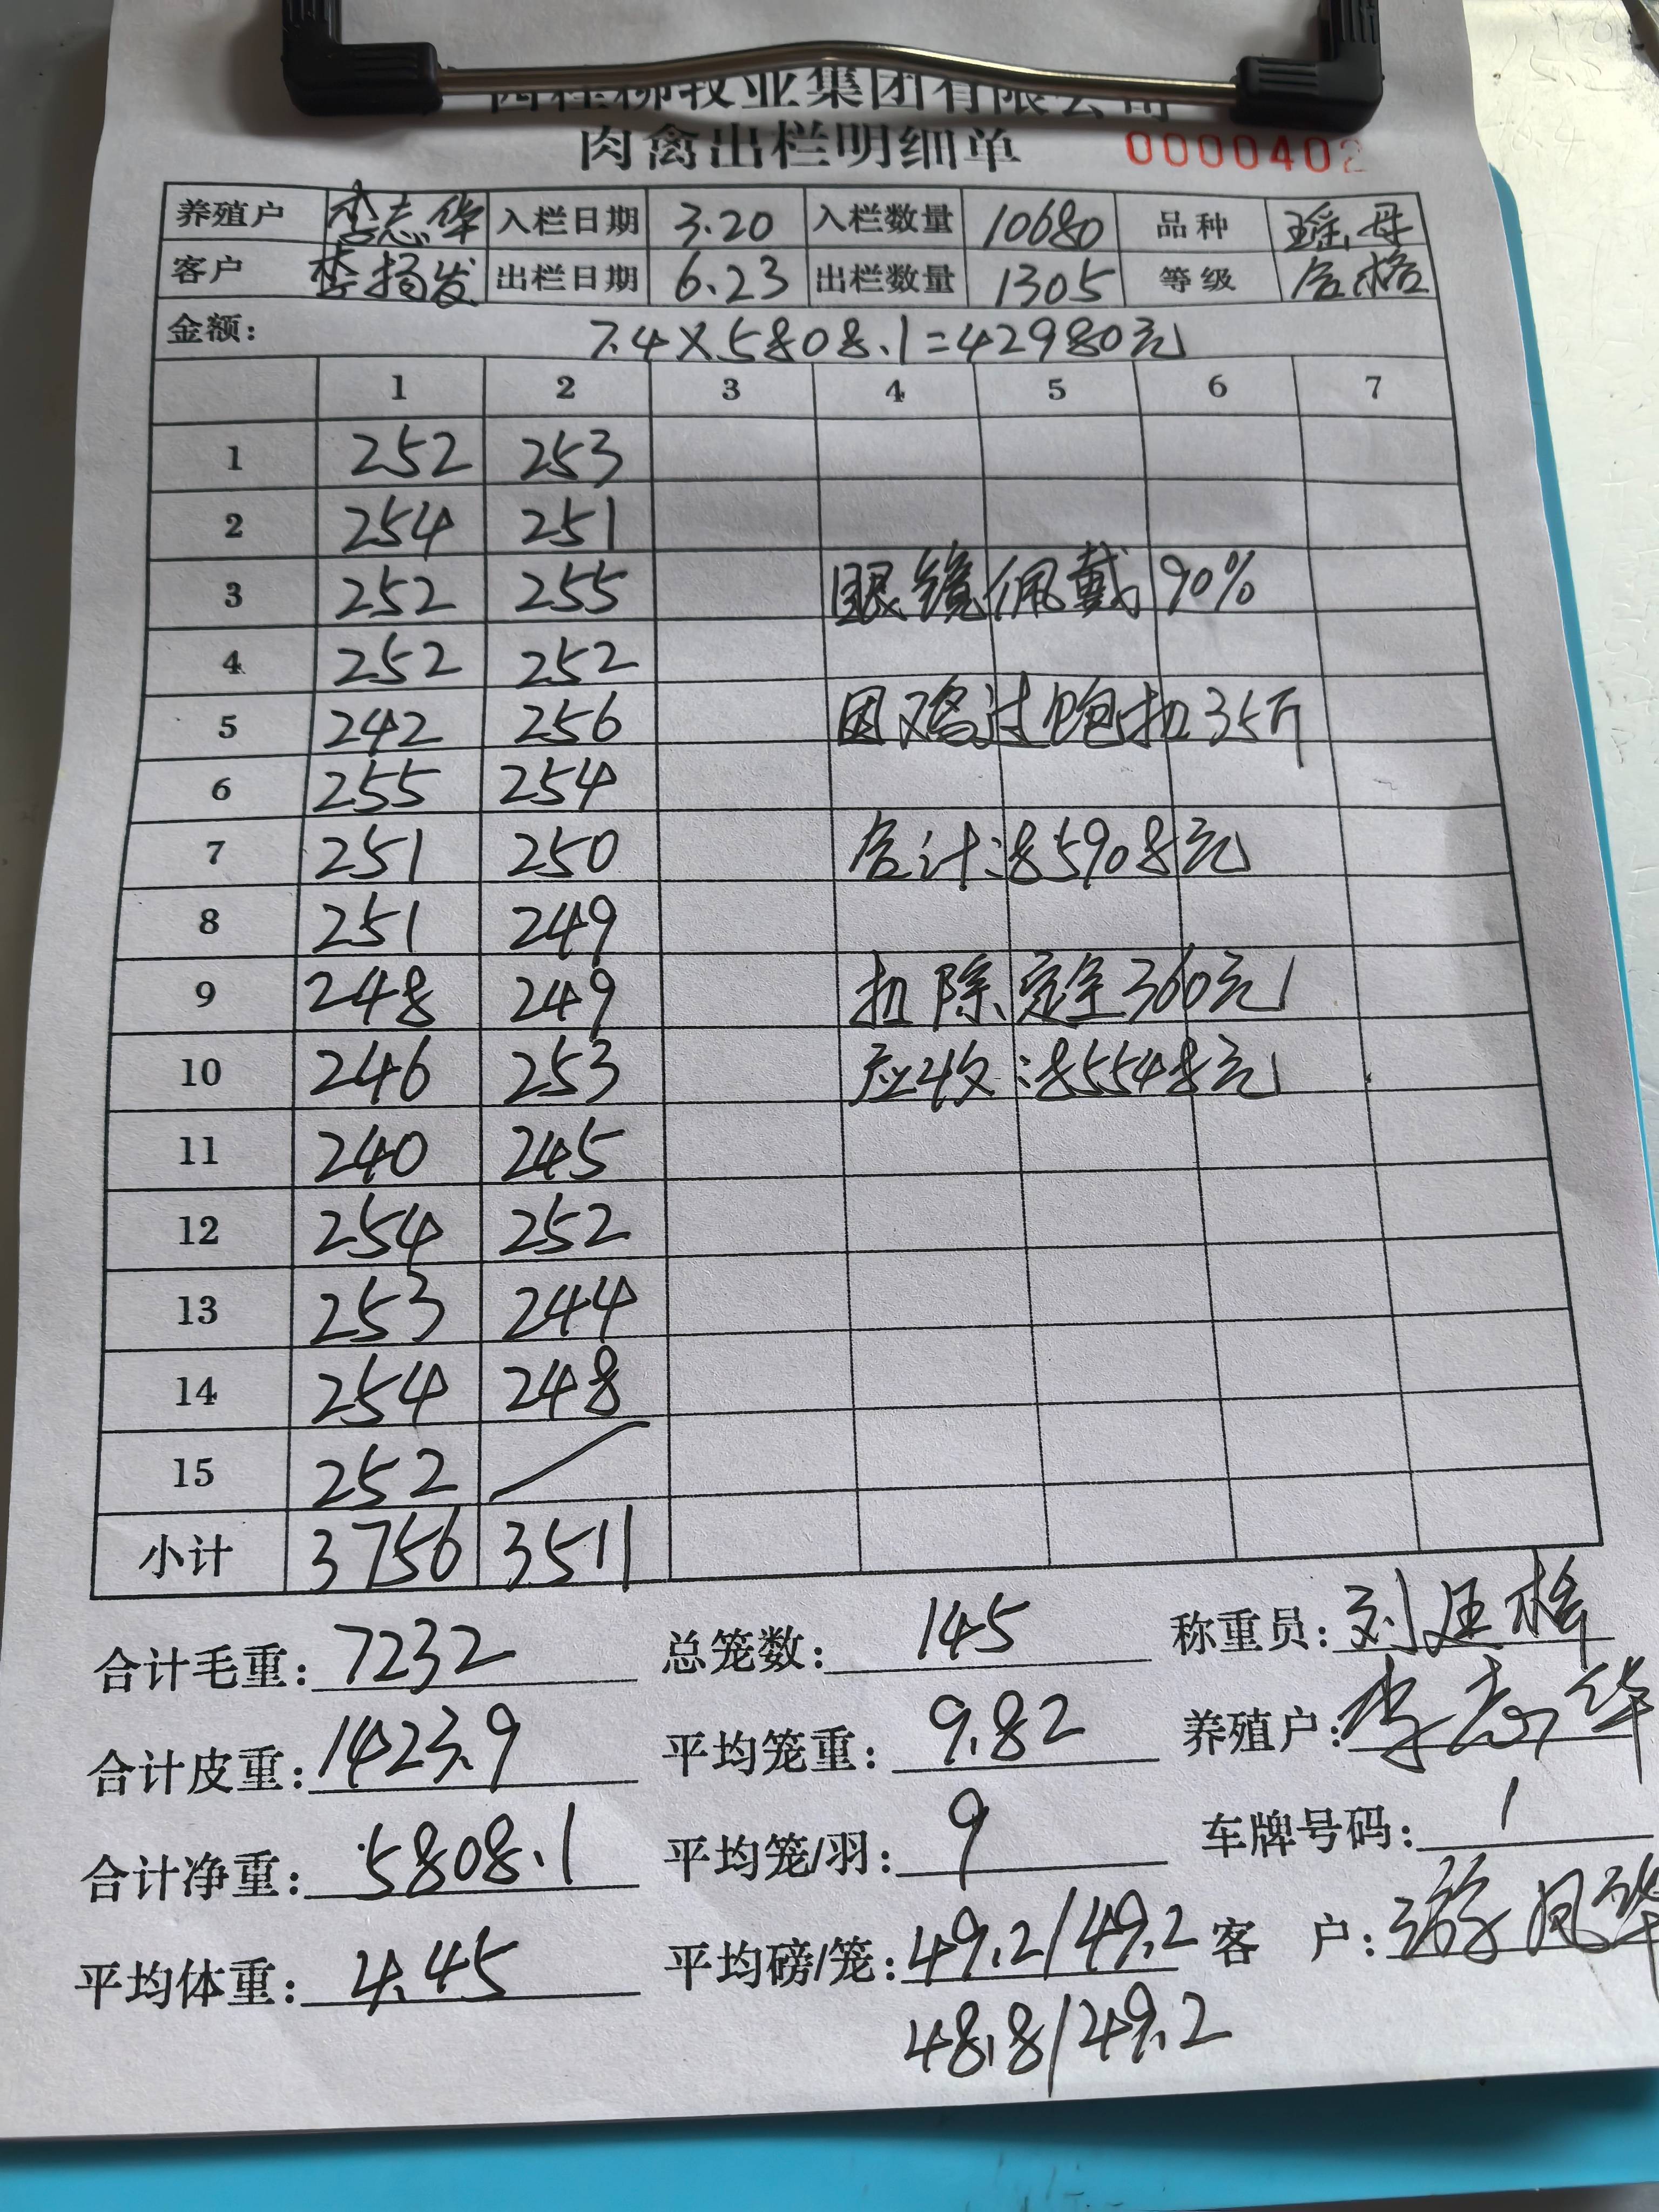 牧业集团有限公司
肉禽出栏明细单 0000402
养殖户 李志华 入栏日期 3.20 入栏数量 10680 品种 瑶母
客户 李扬发 出栏日期 6.23 出栏数量 1305 等级 合格
金额: 7.4×5808.1=42980元
1 2 3 4 5 6 7
1 252 253
2 254 251
3 252 255 眼镜佩戴90%
4 252 252
5 242 256 因鸡过饱扣35斤
6 255 254
7 251 250 合计:85908元
8 251 249
9 248 249 扣除定金360元
10 246 253 应收:85548元
11 240 245
12 254 252
13 253 244
14 254 248
15 252
小计 3756 3511
合计毛重: 7232 总笼数: 145 称重员: 刘廷格
合计皮重: 1423.9 平均笼重: 9.82 养殖户: 李志华
合计净重: 5808.1 平均笼/羽: 9 车牌号码: 1
平均体重: 4.45 平均磅/笼: 49.2/49.2 客 户: 游凤华
48.8/49.2